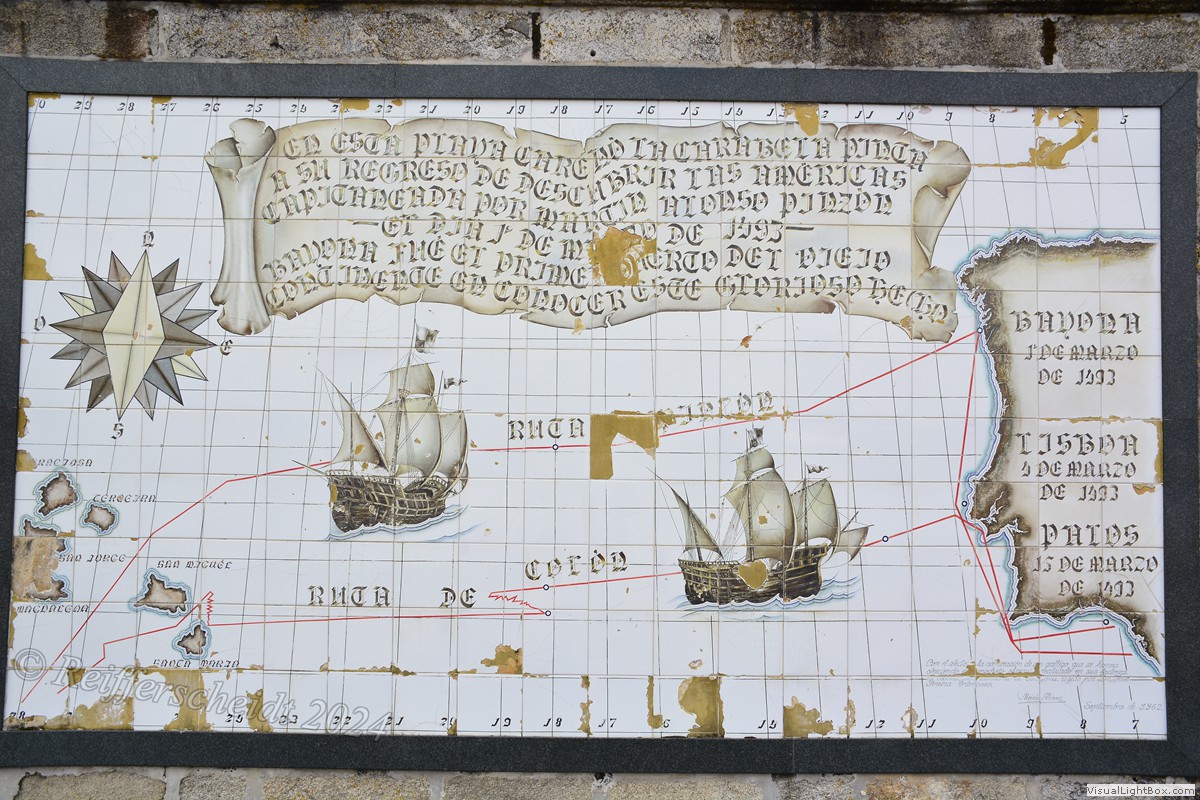 30 29 28 27 26 25 24 23 22 21 20 19 18 17 16 15 14 13 12 11 10 9 8 5
EN ESTA PLAYA CAREÓ LA CARABELA PINTA
A SU REGRESO DE DESCUBRIR LAS AMERICAS
CAPITANEADA POR MARTIN ALONSO PINZÓN
—EL DIA 1º DE DE 1493—
BAYONA FUÉ EL PRIMER PUERTO DEL VIEJO
CONTINENTE EN CONOCER ESTE GLORIOSO HECHO
N
O
E
S
BAYONA
1º DE MARZO
DE 1493
LISBOA
4 DE MARZO
DE 1493
PALOS
15 DE MARZO
DE 1493
RUTA
GRACIOSA
TERCEIRA
SAN JORGE
SAN MIGUEL
MAGDALENA
SANTA MARIA
RUTA DE COLÓN
Septiembre de 1962
28 23 22 21 20 19 18 17 16 14 13 12 11 10 9 8 7
© Reifferscheidt 2024
VisualLightBox.com